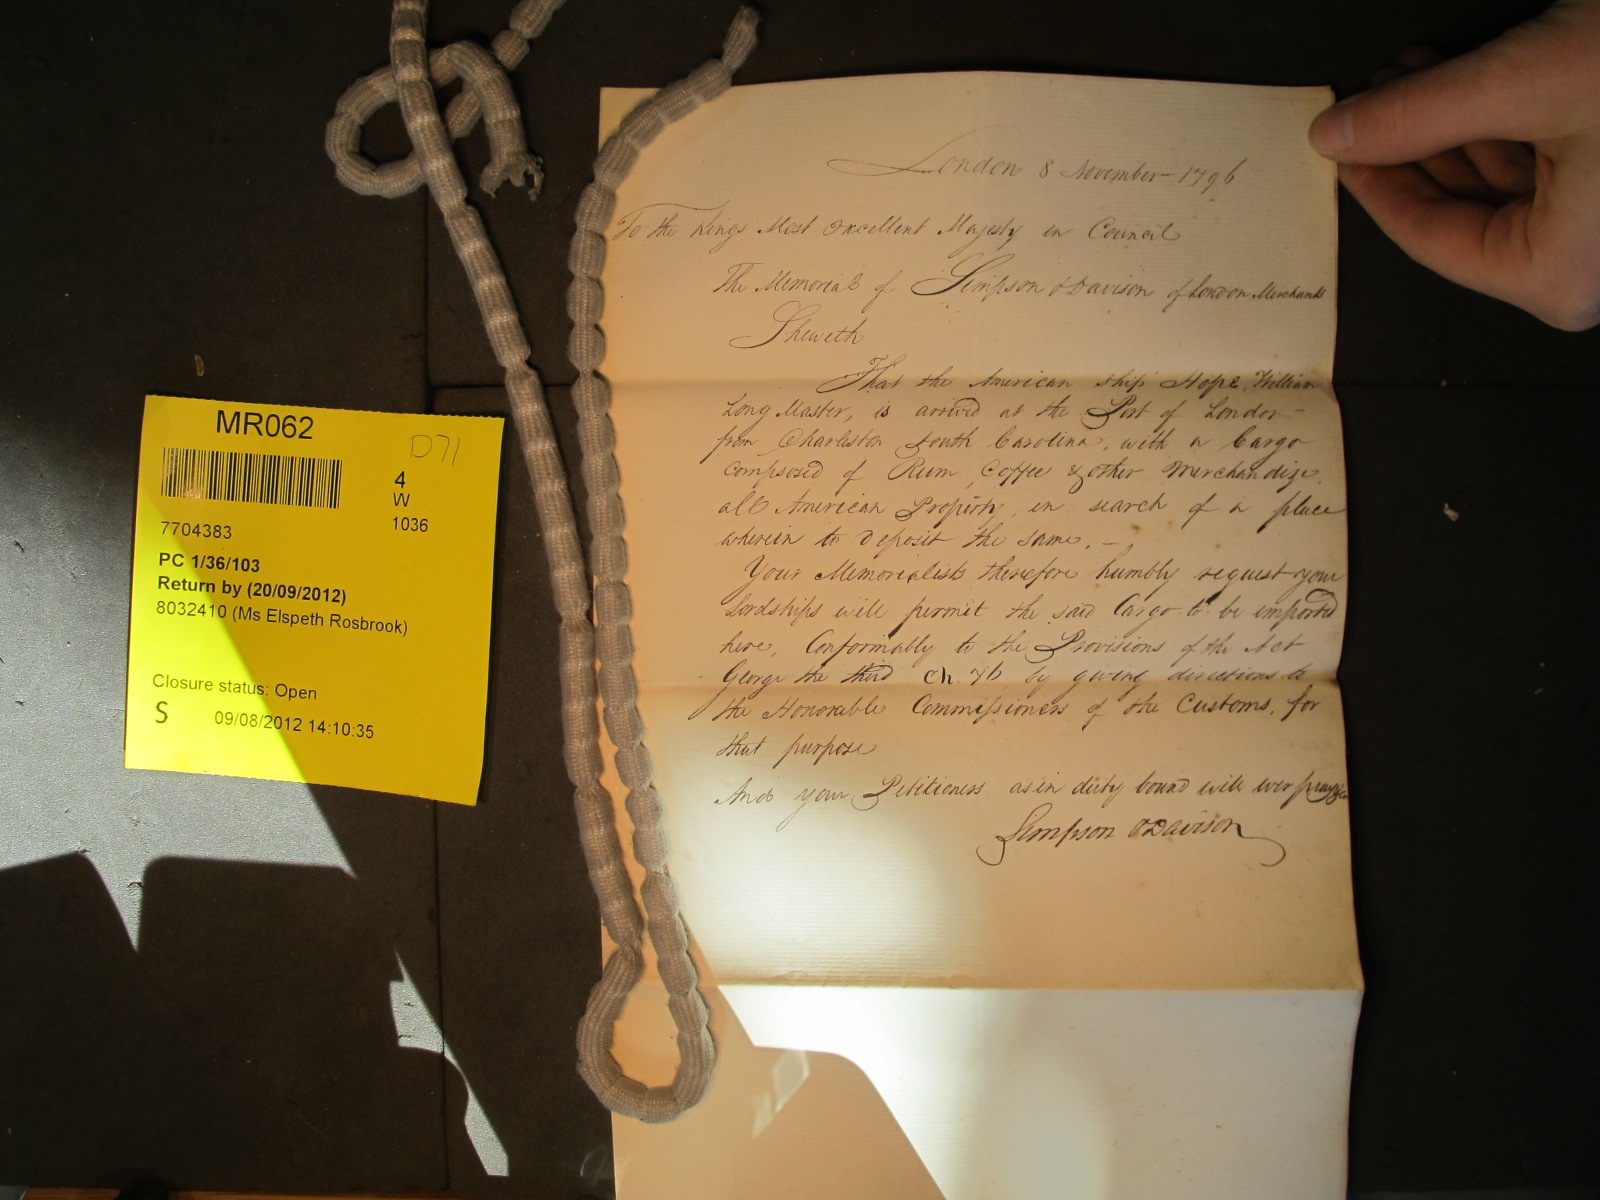 MR062
D71
4
W
1036
7704383
PC 1/36/103
Return by (20/09/2012)
8032410 (Ms Elspeth Rosbrook)
Closure status: Open
S 09/08/2012 14:10:35
London 8 November 1796
To the Kings Most Excellent Majesty in Council
The Memorial of Simpson & Davison of London Merchants
Sheweth
That the American ship Hope, William
Long Master, is arrived at the Port of London
from Charleston South Carolina, with a Cargo
composed of Rum, Coffee & other Merchandize,
all American Property, in search of a place
wherein to deposit the same. —
Your Memorialists therefore humbly request your
Lordships will permit the said Cargo to be imported
here, Conformably to the Provisions of the Act
George the third ch. 76 by giving directions to
the Honorable Commissioners of the Customs, for
that purpose
And your Petitioners as in duty bound will ever pray &c
Simpson & Davison